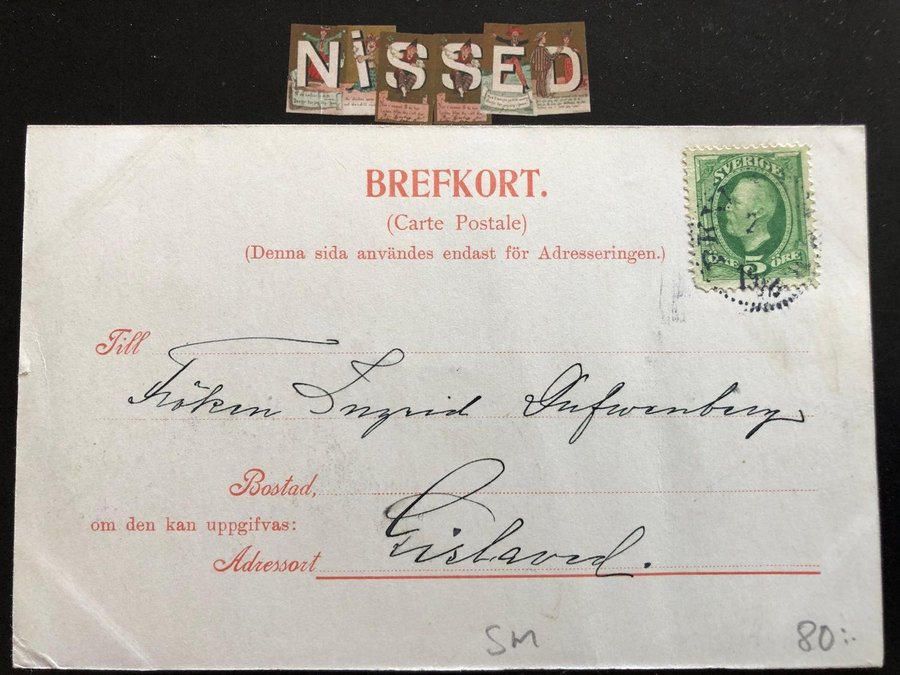 NISSED
BREFKORT.
(Carte Postale)
(Denna sida användes endast för Adresseringen.)
SVERIGE
5 ÖRE
Till
Fröken Ingrid Dufwenberg
Bostad,
om den kan uppgifvas:
Gislaved.
Adressort
SM
80:-